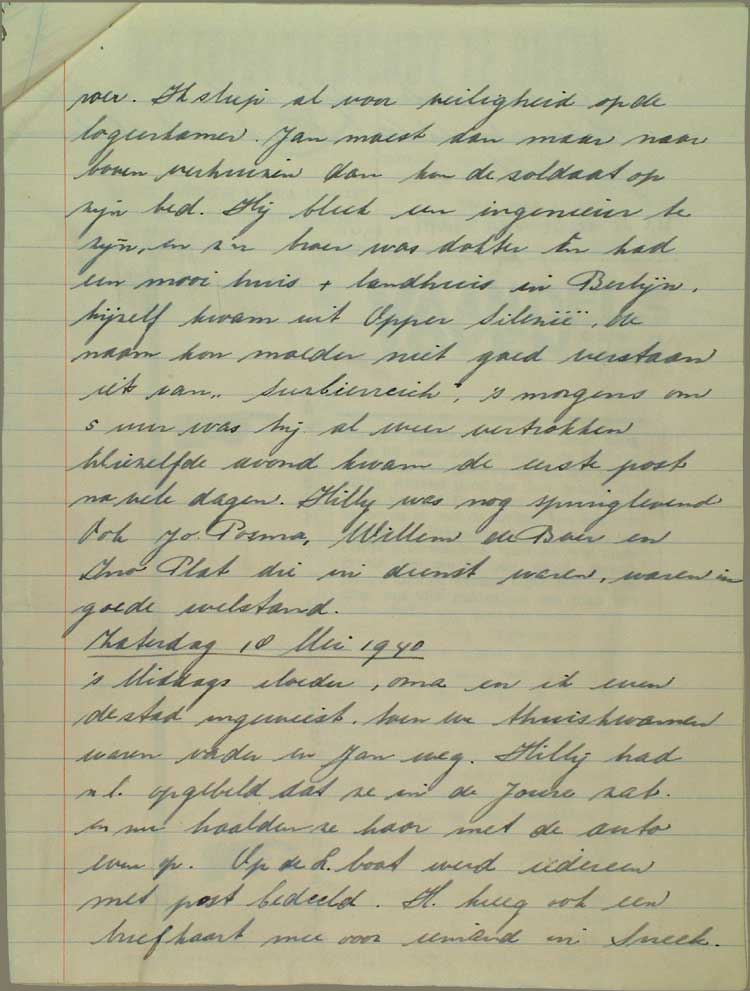 voer. Ik sliep al voor veiligheid op de
logeerkamer. Jan moest dan maar naar
boven verhuizen dan kon de soldaat op
zijn bed. Hij bleek een ingenieur te
zijn, en z'n broer was dokter en had
een mooi huis + landhuis in Berlijn,
hijzelf kwam uit Opper Silenië, de
naam kon moeder niet goed verstaan
iets van „ Surbierreich", 's morgens om
5 uur was hij al weer vertrokken
diezelfde avond kwam de eerste post
na vele dagen. Hilly was nog springlevend
Ook Jo. Posma, Willem de Boer en
Ino Plat die in dienst waren, waren in
goede welstand.
Zaterdag 18 Mei 1940
's Middags moeder, oma en ik even
de stad ingeweest. toen we thuiskwamen
waren vader en Jan weg. Hilly had
n.l. opgebeld dat ze in de Joure zat.
en nu haalden ze haar met de auto
even op. Op de L. boot werd iedereen
met post bedeeld. H. kreeg ook een
briefkaart mee voor iemand in Sneek.